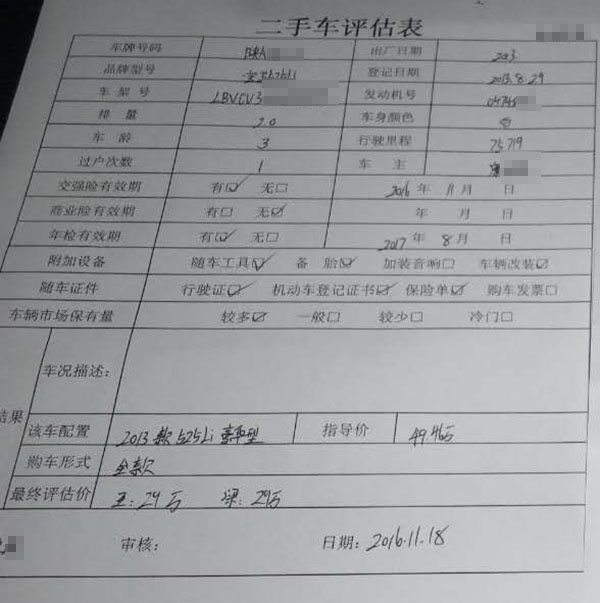 二手车评估表
车牌号码 陕A 出厂日期 2013
品牌型号 宝马525Li 登记日期 2013.8.29
车架号 LBVCV3 发动机号 04745
排量 2.0 车身颜色 白
车龄 3 行驶里程 75719
过户次数 1 车主
交强险有效期 有☑ 无□ 2016年 11月 日
商业险有效期 有□ 无☑ 年 月 日
年检有效期 有☑ 无□ 2017年 8月 日
附加设备 随车工具☑ 备胎☑ 加装音响□ 车辆改装☑
随车证件 行驶证☑ 机动车登记证书☑ 保险单☑ 购车发票□
车辆市场保有量 较多☑ 一般□ 较少□ 冷门□
车况描述:
结果
该车配置 2013款525Li 豪华型 指导价 49.46万
购车形式 全款
最终评估价 王:29万 梁:29万
审核: 日期:2016.11.18